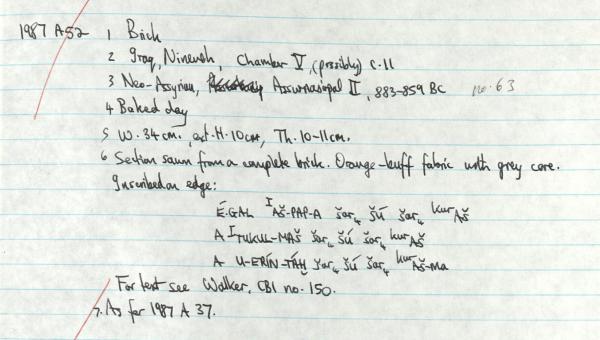 1987 A 52 1 Brick
2 Iraq, Nineveh, Chamber V, (possibly) c.11
3 Neo-Assyrian, Assurnasirpal II, 883-859 BC no. 63
4 Baked clay
5 W. 34cm., ext. H. 10cm, Th. 10-11cm.
6 Section sawn from a complete brick. Orange-buff fabric with grey core.
Inscribed on edge:
É.GAL ᴵAŠ-PAP-A šar₄ ŠÚ šar₄ ᵏᵘʳAŠ
A ᴵTUKUL-MAŠ šar₄ ŠÚ šar₄ ᵏᵘʳAŠ
A U-ERÍN-TÁḪ šar₄ ŠÚ šar₄ ᵏᵘʳAŠ-ma
For text see Walker, CBI no. 150.
7. As for 1987 A 37.